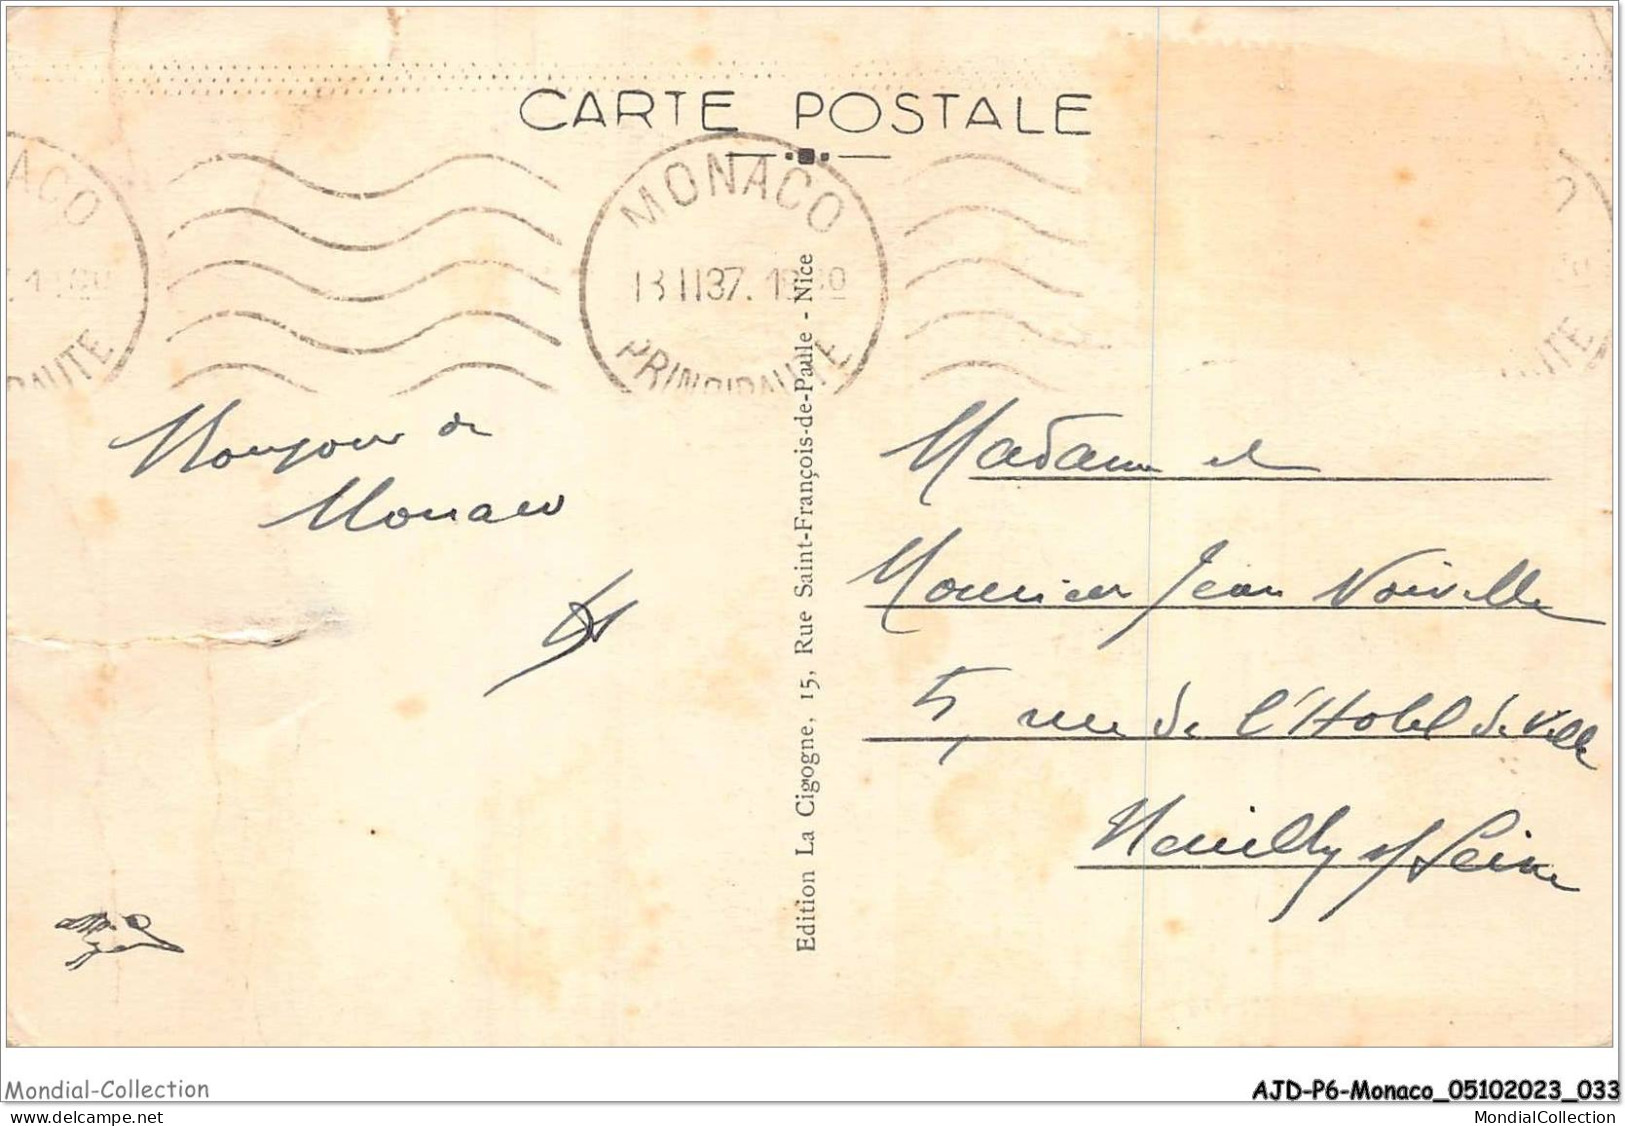 CARTE POSTALE
MONACO
13 II 37. 19
PRINCIPAUTE
ACO
AUTE
UTE
Bonjour de
Monaco
Edition La Cigogne, 15, Rue Saint-François-de-Paule - Nice
Madame et
Monsieur Jean
5, rue de l'Hotel de Ville
Neuilly s/ Seine
Mondial-Collection
AJD-P6-Monaco_05102023_033
delcampe.net
MondialCollection